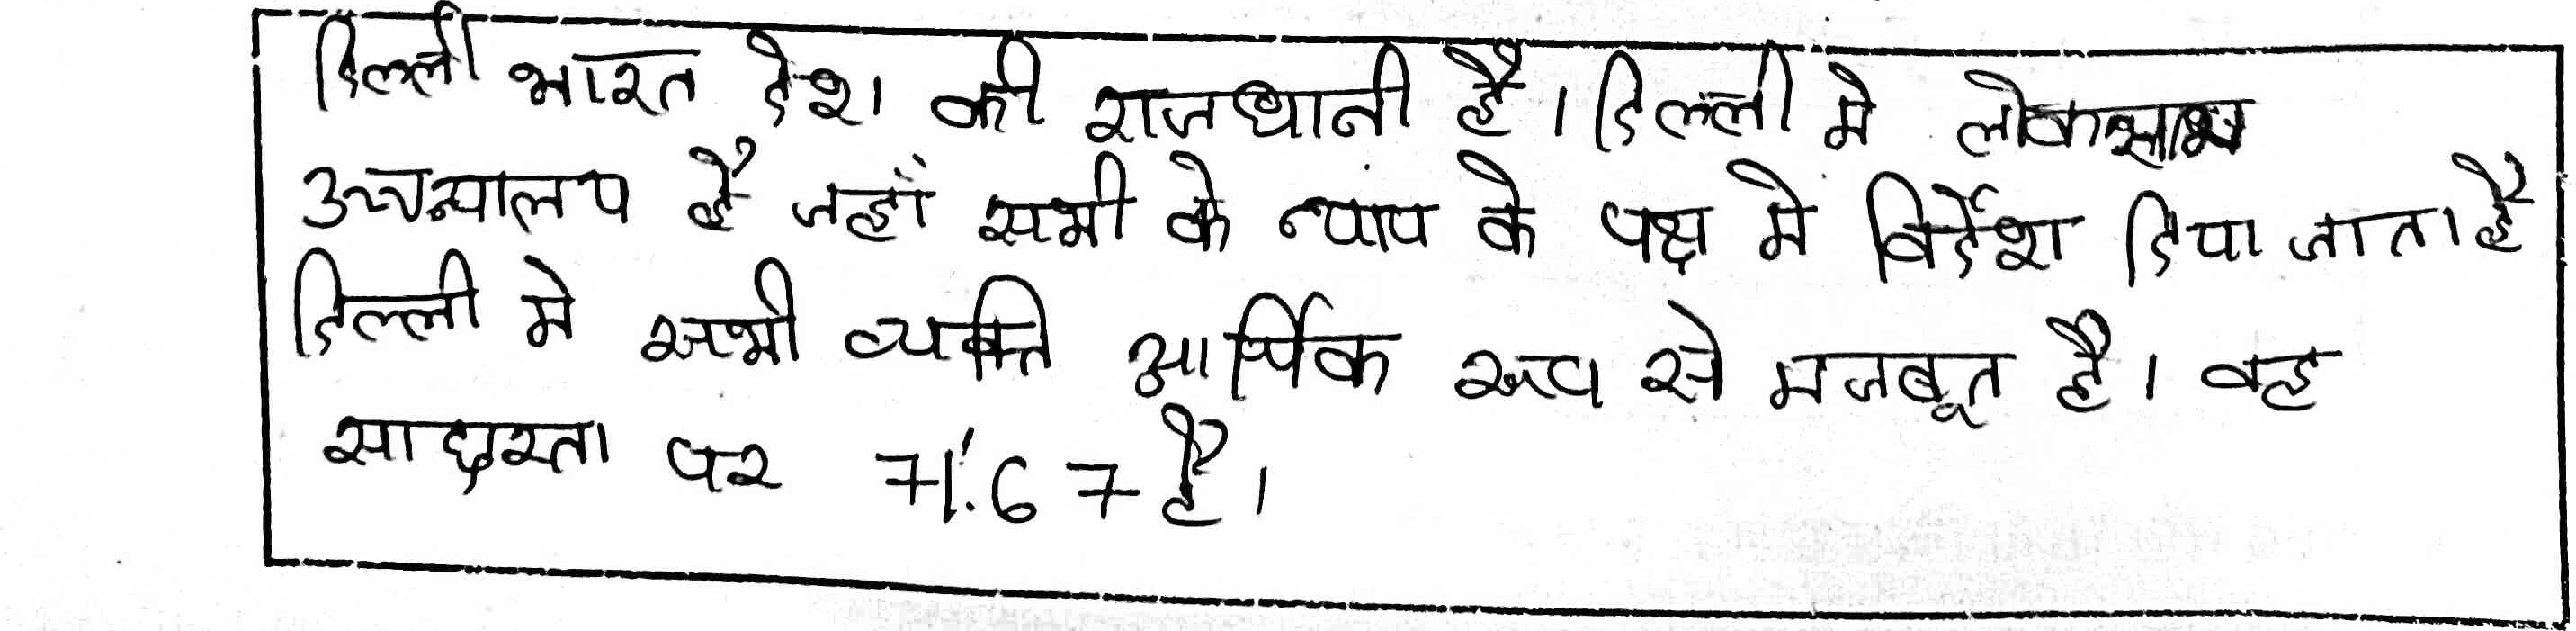 दिल्ली भारत देश की राजधानी है। दिल्ली मे
उच्चन्यालय है जहाँ सभी के न्याय के पक्ष मे निर्देश दिया जाता है
दिल्ली मे सभी व्यक्ति आर्थिक रूप से मजबूत है। वह
साक्षरता पर 71.67 है।